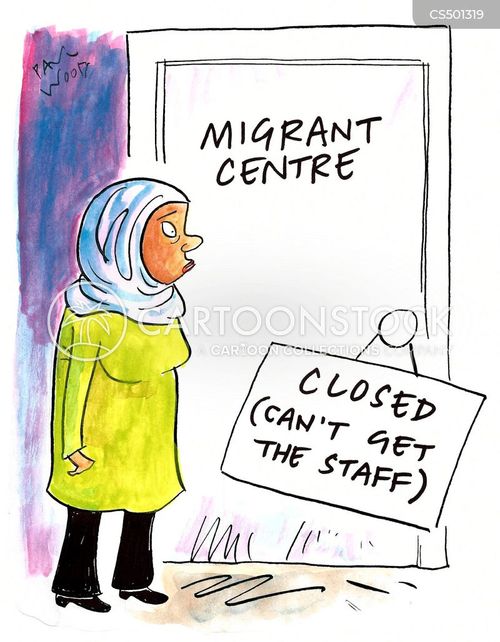 CS501319
PAUL
WOOD
MIGRANT
CENTRE
CARTOONSTOCK
A CARTOON COLLECTIONS COMPANY
CLOSED
(CAN'T GET
THE STAFF)